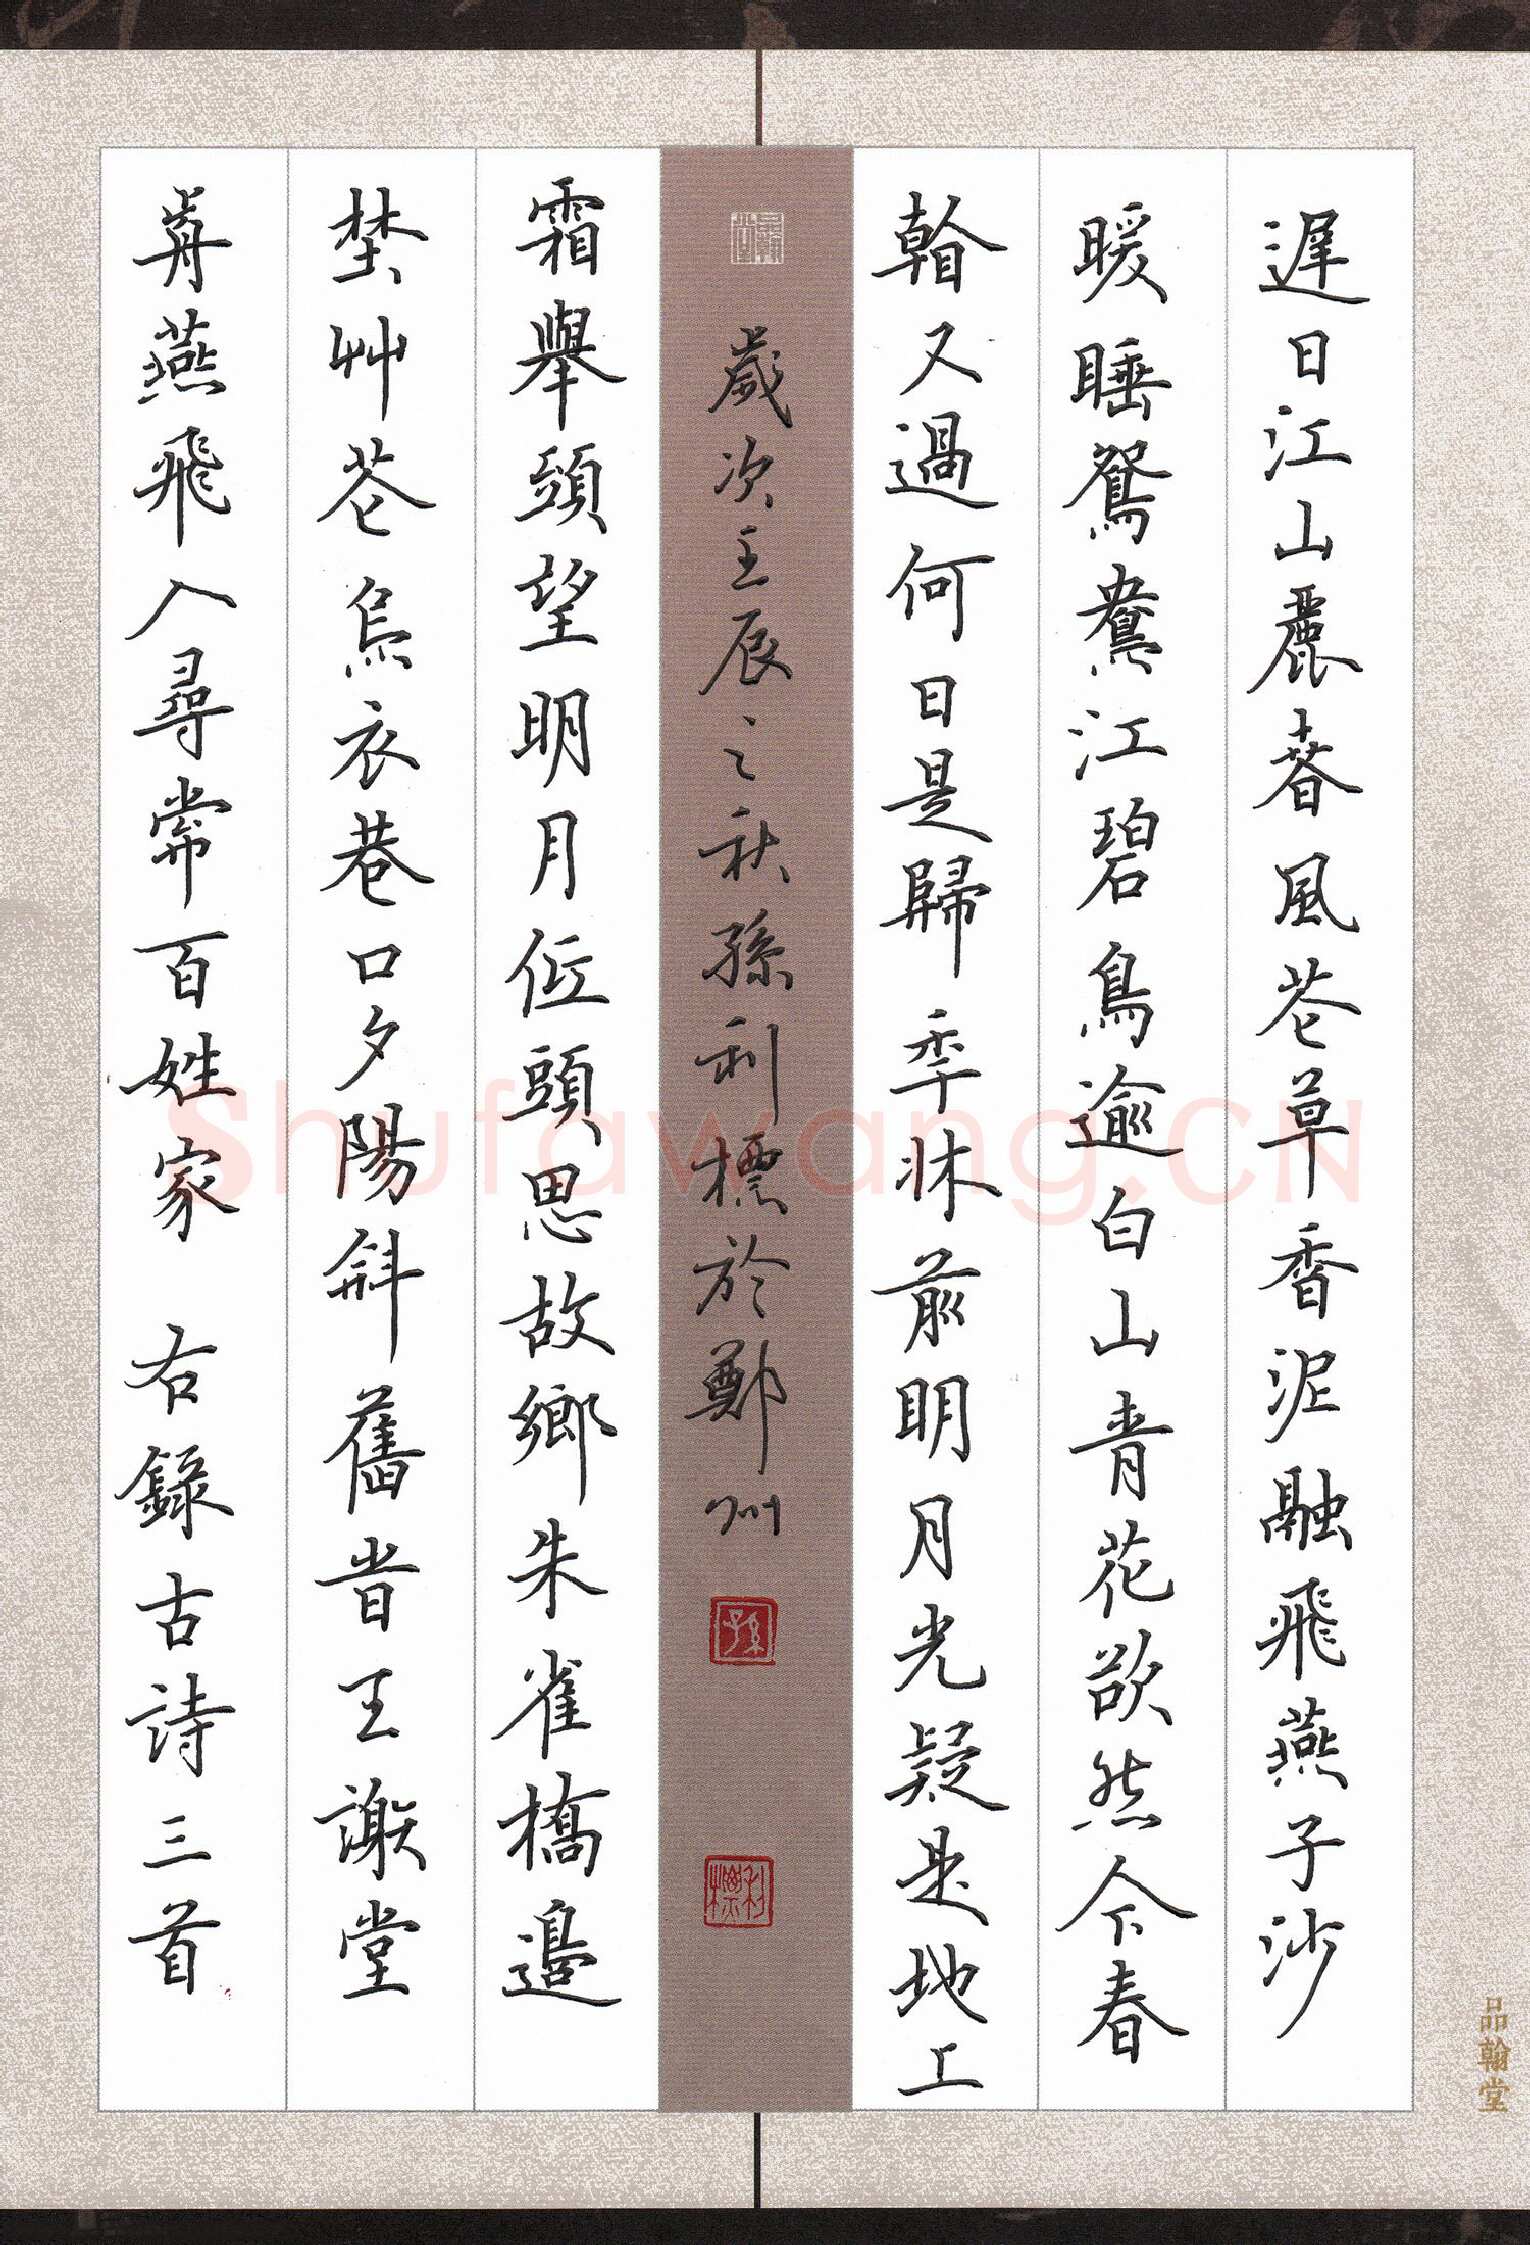 遲日江山麗春風花草香泥融飛燕子沙
暖睡鴛鴦江碧鳥逾白山青花欲然今春
看又過何日是歸年牀前明月光疑是地上
霜舉頭望明月低頭思故鄉朱雀橋邊
埜艸花烏衣巷口夕陽斜舊昔王謝堂
前燕飛入尋常百姓家 右錄古詩三首
歲次壬辰之秋孫利標於鄭州
孫
利標
品翰堂
品翰堂
Shufawang.CN